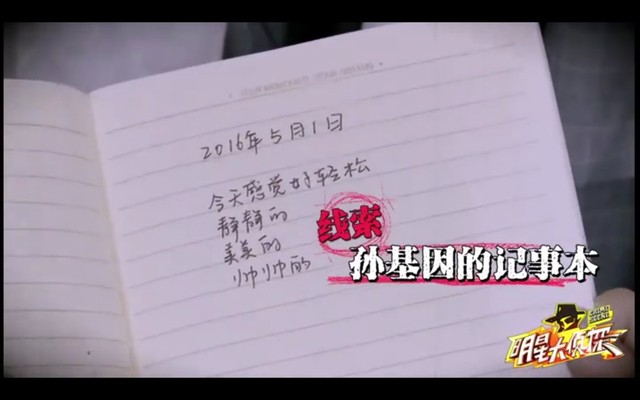 2016年5月1日
今天感觉好轻松
静静的
美美的
帅帅的
线索
孙基因的记事本
明星大侦探